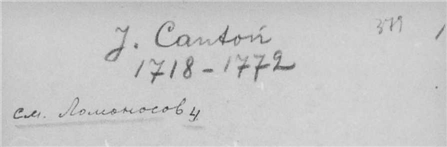 J. Canton 379
1718-1772
см. Ломоносов 4